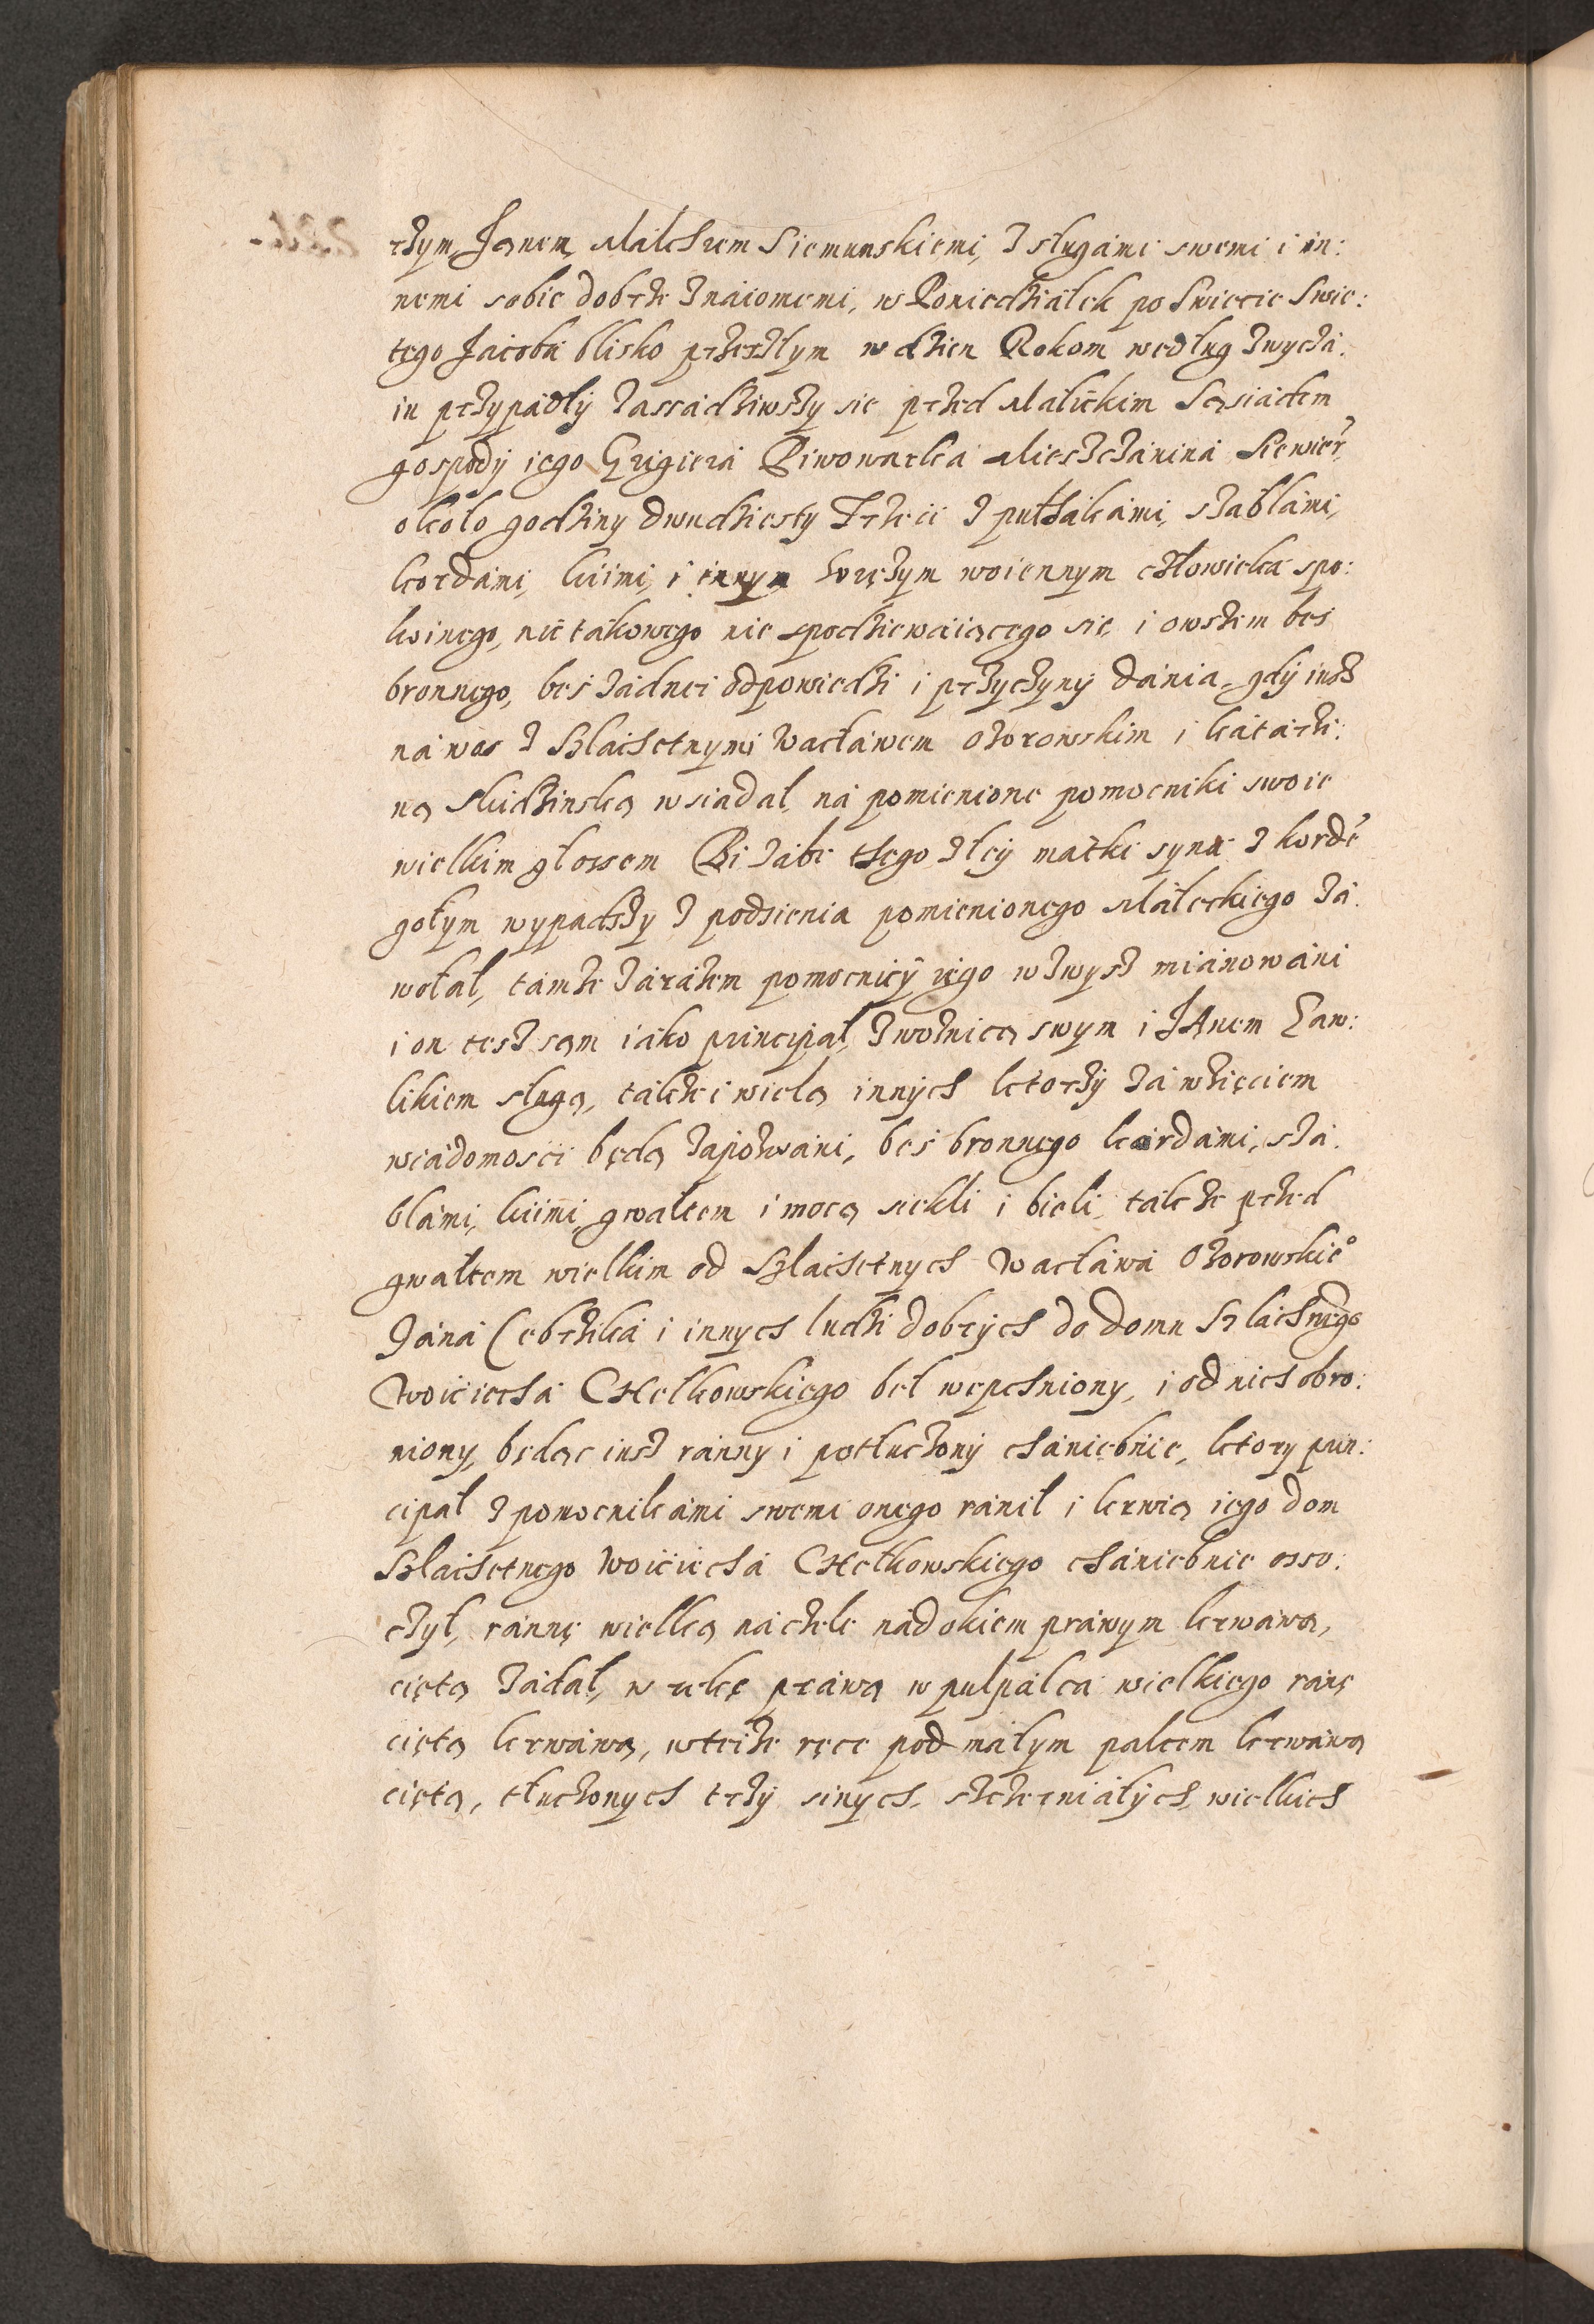 rzym, Janem, Malchrem Siemunskiemi, z slugámi swemi i in:
nemi sobie dobrze znáiomemi, w Poniedziáłek po Swięcie Swię:
tego Jácobá blisko przeszłym w dzien Rokom według zwyczá:
iu przypádłÿ zassádziwszy się przed Máłeckim Sąsiádem
gospodÿ iego Grigierá Piwowárká Mieszczániná Siewier̃,
około godziny dwudziesty Trzeci z pułhákámi, száblámi,
kordámi, kiimi, i innym orężym woiennym człowieká spo:
koinego, nic tákowego nie spodziewáiącego się i owszem bes
bronnego, bes żádnei odpowiedzi i przyczynÿ dánia, gdÿ iusz
ná wos z Szláchetnymi Wacłáwem Ożorowskim i Kátárzi:
ną Słudzinską wsiadał, ná pomienione pomocniki swoie
wielkim głossem Bi zábi tego złeÿ mátki syná z korde̾
gołym wypadszy z podsienia pomienionego Máłeckiego zá:
wołał, támże zárázem pomocnicÿ iego wzwysz miánowáni
i on tesz sąm iáko principał, z woźnicą swym i JAnem Law:
likiem sługą, tákże i wielą innÿch ktorzÿ zá wzięciem
wiádomosci będą zápozwáni, bes bronnego kordámi, szá:
blámi, kiimi, gwałtem i mocą siekli i bieli, tákże przed
gwałtem wielkim od Szláchetnych Wacłáwá Ożorowskie°
Jáná Cebrziká i innych ludzi dobrÿch do domu Szláchnego
Woiciechá Chełkowskiego beł wepchniony, i od nich obro:
niony, będąc iusz ránny i potłuczonÿ chániebnie, ktory prin:
cipał z pomocnikámi swemi onego ránił i krwią iego dom
Szláchetnego Woiciechá Chełkowskiego chániebnie osso:
czył, ránnę wielką ná czele nád okiem práwym krwáwą,
ciętą zádał, w rękę práwą w pulpálcá wielkiego ránę
ciętą krwáwą, w teiże ręce pod máłym palcem krwáwą
ciętą, tłuczonych trzÿ sinych, sczerniáłÿch, wielkich